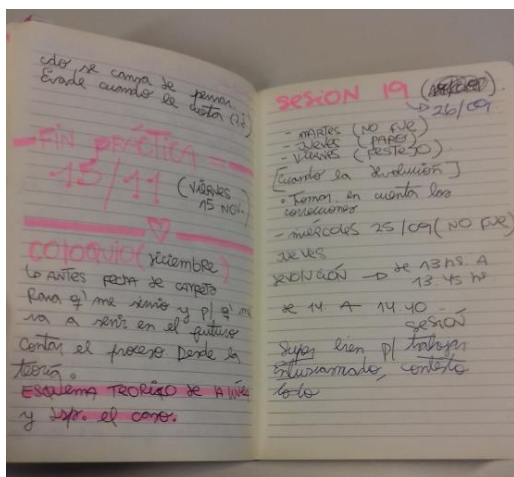 cdo se cansa de pensar.
Evade cuando le cuesta
- FIN PRÁCTICA -
15/11 (VIERNES
15 NOV.)
COLOQUIO (diciembre)
ANTES FECHA de CARPETA
Para q' me sirvio y p/ q' me
va a servir en el futuro
Contar el proceso Desde la
teoría.
ESQUEMA TEORICO de A
y dsp. el caso.
SESION 19
26/09
- MARTES (NO FUE)
- JUEVES (PARO)
- VIERNES (FESTEJO)
[Cuando la devolución]
• Tomar en cuenta las
correcciones
- miércoles 25/09 (NO FUE)
JUEVES
DEVOLUCIÓN → de 13 hs. A
13.45 hs
de 14 A 14.40
SESIÓN
Super bien p/ trabajar
Entusiasmado, contesto
todo